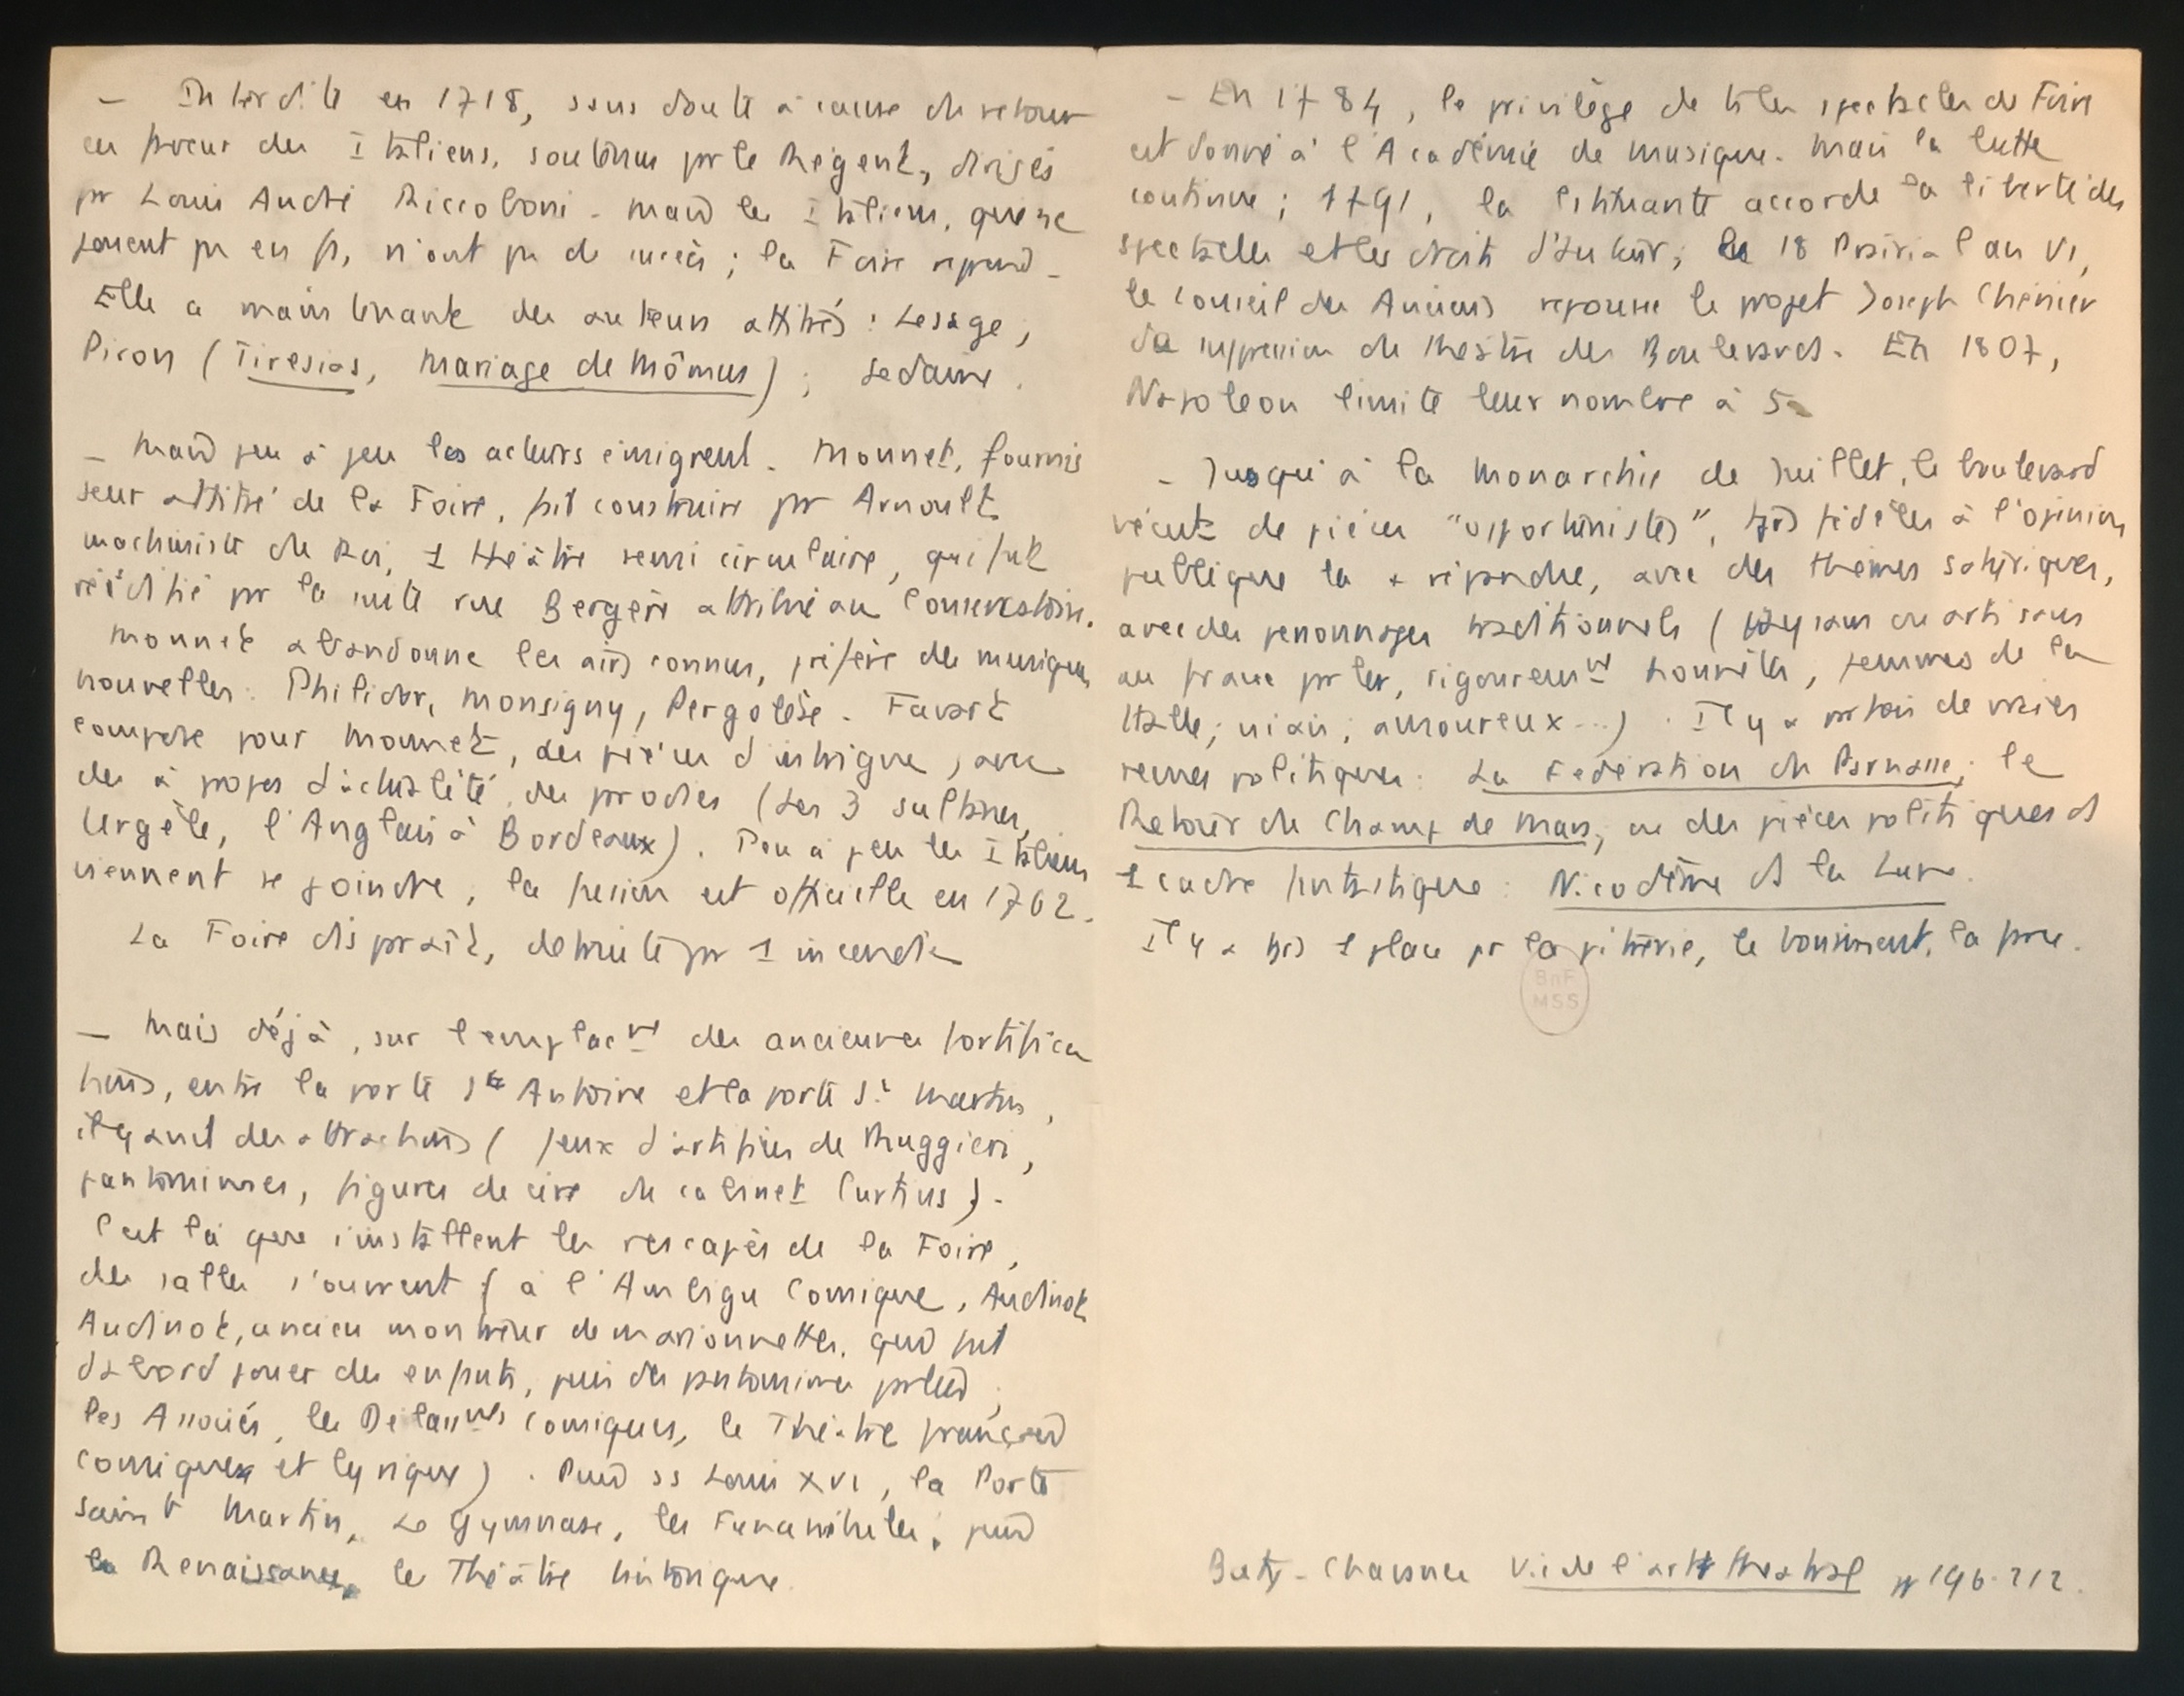 – Interdite en 1718, sans doute à cause du retour
en faveur des Italiens, soutenus par le Régent, dirigés
pr Louis André Riccoboni. Mais les Italiens, qui ne
jouent pas en fr, n'ont pas de succès ; la Foire reprend.
Elle a maintenant des auteurs attitrés : Lesage,
Piron (Tiresias, Mariage de Mômus) ; Sedaine.
– Mais peu à peu les acteurs émigrent. Monnet, fournis
seur attitré de la Foire, fait construire pr Arnoult
machiniste du Roi, 1 théâtre semi circulaire, qui fut
réédifié pr la suite rue Bergère attribué au Conservatoire.
Monnet abandonne les airs connus, préfère des musiques
nouvelles : Philidor, Monsigny, Pergolèse. Favart
compose pour Monnet, des pièces d'intrigue, avec
des à propos d'actualité, des parodies (Les 3 sultanes,
Urgèle, l'Anglais à Bordeaux). Peu à peu les Italiens
viennent se joindre, la fusion est officielle en 1762.
La Foire disparaît, détruite pr 1 incendie
– Mais déjà, sur l'emplact des anciennes fortifica
tions, entre la porte St Antoine et la porte St Martin,
il y avait des attractions ( feux d'artifices de Ruggieri,
pantomimes, figures de cire du cabinet Curtius ).
C'est là que s'installent les rescapés de la Foire,
des salles s'ouvrent ( à l'Ambigu Comique, Audinot
Audinot, ancien montreur de marionnettes, qui fait
d'abord jouer des enfants, puis des pantomimes parlées,
les Associés, les Délassnts comiques, le Théâtre français
comique et lyrique). Puis ss Louis XVI, la Porte
Saint Martin, Le Gymnase, les Funambules, puis
la Renaissance, le Théâtre historique.
– En 1784, le privilège de ts les spectacles de Foire
est donné à l'Académie de musique. Mais la lutte
continue ; 1791, la Cstituante accorde la liberté des
spectacles et les droits d'auteur ; le 18 Prairial an VI,
le Conseil des Anciens repousse le projet Joseph Chénier
de suppression du théâtre des Boulevards. En 1807,
Napoléon limite leur nombre à 5
– Jusqu'à la Monarchie de Juillet, le boulevard
vécut de pièces "opportunistes", très fidèles à l'opinion
publique la + répandue, avec des thèmes satyriques,
avec des personnages traditionnels ( paysans ou artisans
au franc parler, rigoureust honnêtes, femmes de la
Halle, niais, amoureux...). Il y a parfois de vraies
revues politiques : La Fédération du Parnasse, le
Retour du Champ de Mars, ou des pièces politiques ds
1 cadre fantastique : Nicodème ds la Lune.
Il y a trs 1 place pr la pitrerie, le boniment, la farce.
BnF
MSS
Baty-Chavance Vie de l'art théâtral pp 196-212.